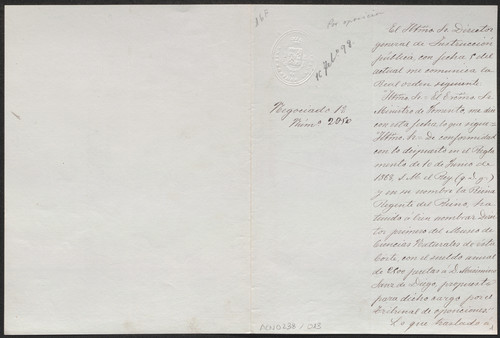 168
Por oposición
10 Feb.º 98
Negociado 18
Núm.º 2050
El Iltmo Sr. Director
general de Instrucción
pública, con fecha 1º del
actual me comunica la
Real orden siguiente.
Iltmo Sr.- El Excmo Sr.
Ministro de Fomento, me dice
con esta fecha lo que sigue=
Iltmo. Sr.- De conformidad
con lo dispuesto en el Regla
mento de 10 de Junio de
S. M. el Rey (q. D. g.)
y en su nombre la Reina
Regente del Reino, ha
tenido a bien nombrar Disec
tor primero del Museo de
Ciencias Naturales de esta
Corte, con el sueldo anual
de pesetas a D. Maximino
Sanz de Diego, propuesto
para dicho cargo por el
Tribunal de oposiciones.
Lo que traslado a
ACN0238 / 013